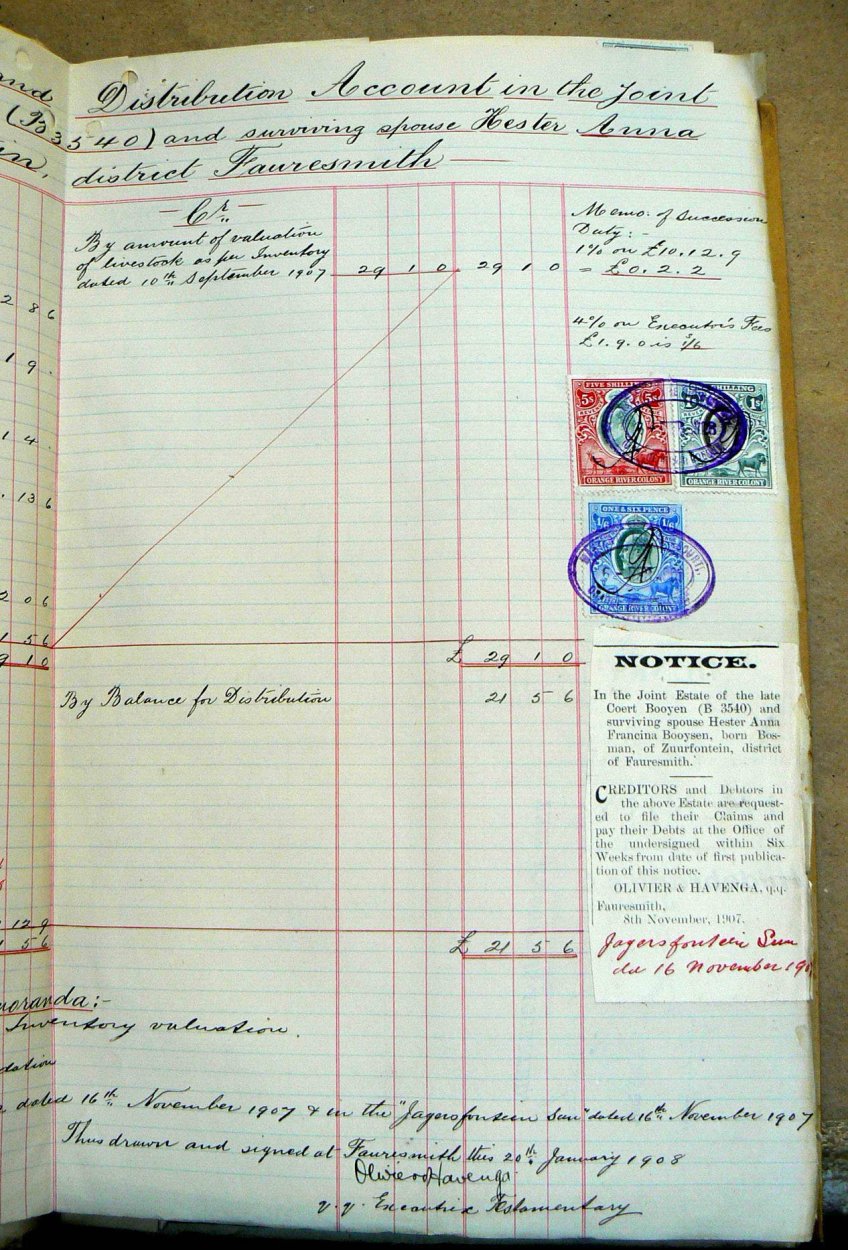 and
Distribution Account in the Joint
(B3540) and surviving spouse Hester Anna
in,
district Fauresmith
Cr.
By amount of valuation
of livestock as per Inventory
dated 10th September 1907 29 1 0 29 1 0
Memo. of Succession
Duty: -
1% on £10.12.9
= £0.2.2
4% on Executor's Fees
£1.9.0 is 1/6
2 8 6
1 9 .
1 4 .
. 13 6
2 0 6
1 5 6
9 1 0
FIVE SHILLINGS
5s 5s
ORANGE RIVER COLONY
SHILLING
1s
ORANGE RIVER COLONY
ONE & SIX PENCE
1/6 1/6
ORANGE RIVER COLONY
£ 29 1 0
By Balance for Distribution 21 5 6
NOTICE.
In the Joint Estate of the late
Coert Booyen (B 3540) and
surviving spouse Hester Anna
Francina Booysen, born Bos-
man, of Zuurfontein, district
of Fauresmith.
CREDITORS and Debtors in
the above Estate are request-
ed to file their Claims and
pay their Debts at the Office of
the undersigned within Six
Weeks from date of first publica-
tion of this notice.
OLIVIER & HAVENGA, q.q.
Fauresmith,
8th November, 1907.
Jagersfontein Sun
dd 16 November 190
12 9
1 5 6
£ 21 5 6
moranda:-
Inventory valuation.
dation
dated 16th November 1907 & in the "Jagersfontein Sun" dated 16th November 1907
Thus drawn and signed at Fauresmith this 20th January 1908
Olivier & Havenga
q.q. Executrix Testamentary